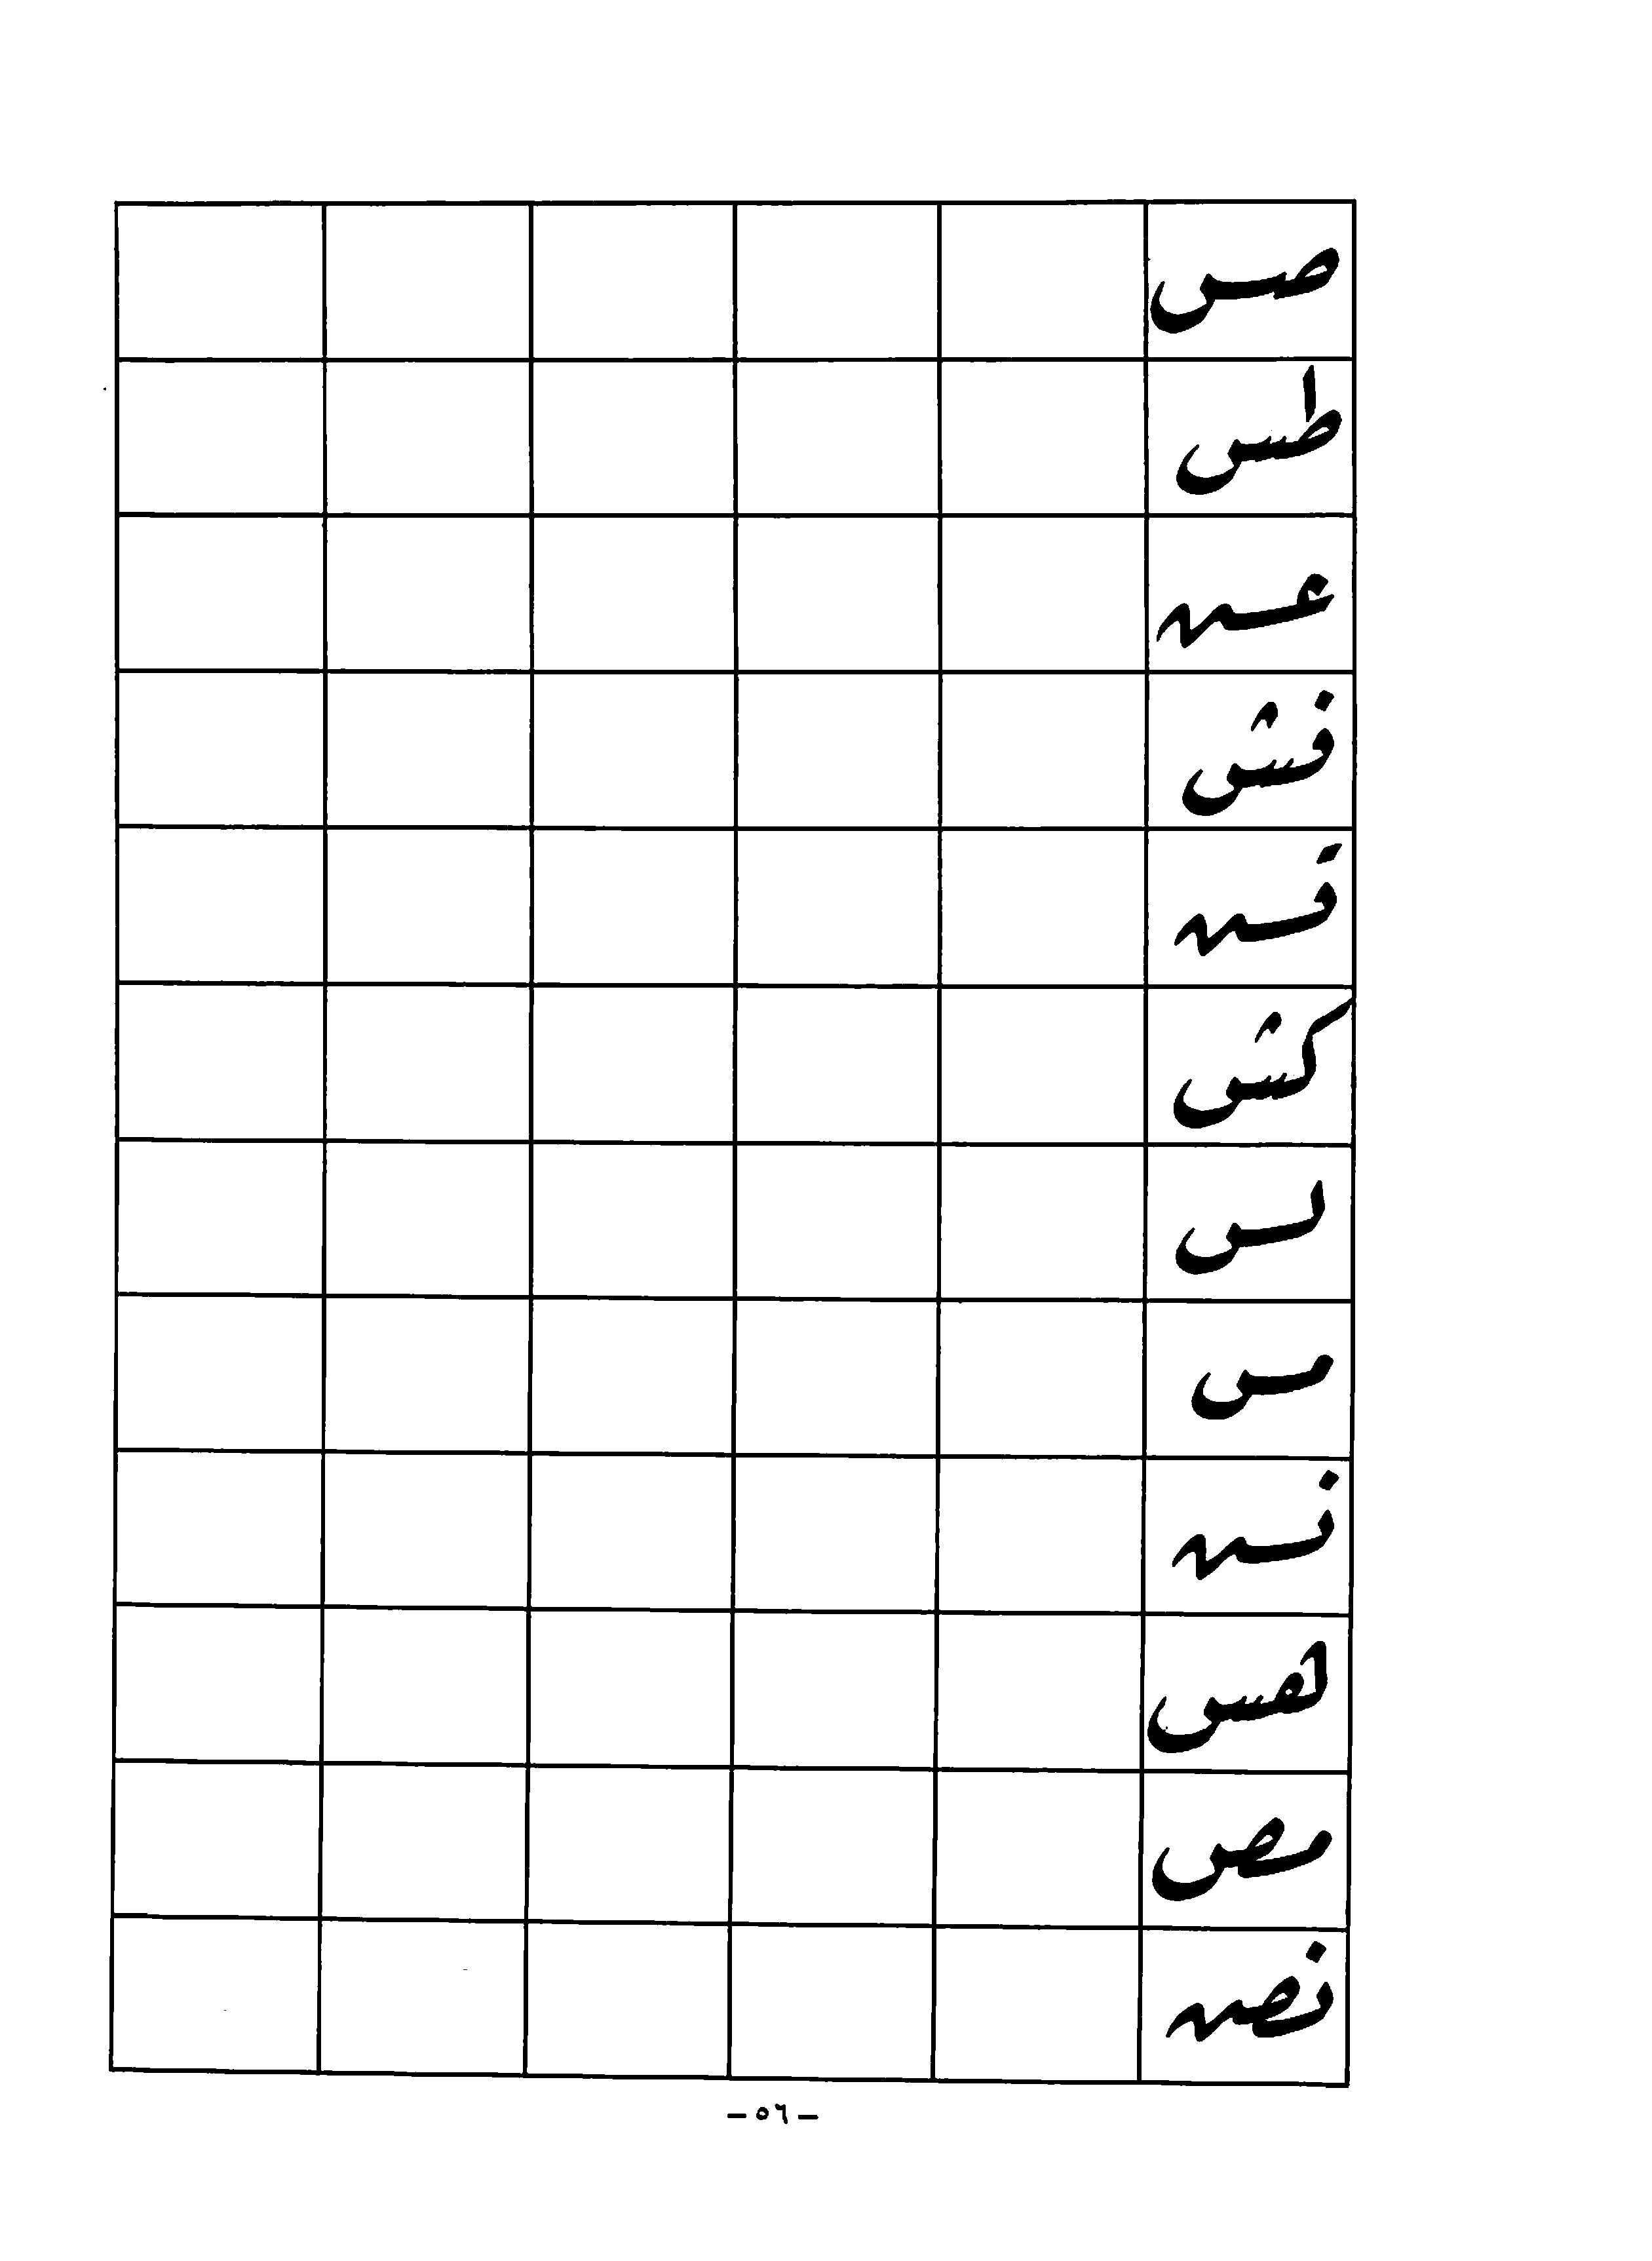 صس
طس
عس
فش
قس
كش
لس
مس
نس
لهس
مص
نص
- ٥٦ -